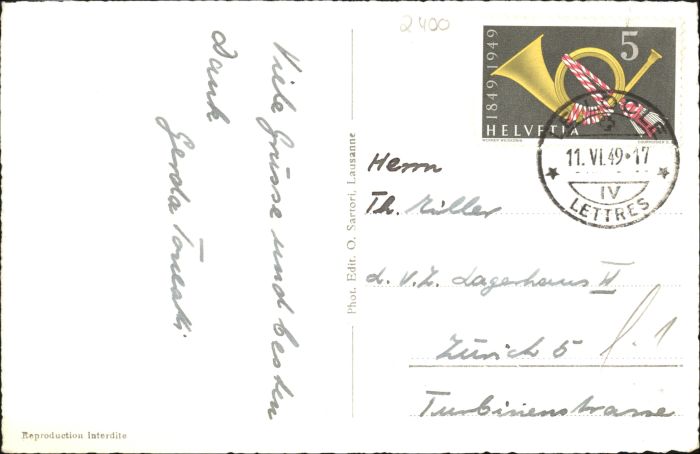 Viele Grüsse und besten
Dank
Gerda
2400
1849 1949
5
HELVETIA
LE LOCLE
11. VI. 49 - 17
IV
LETTRES
Herrn
Th.
d. V. Z. Lagerhaus II
Zürich 5
Turbinenstrasse
Phot. Edit. O. Sartori, Lausanne
Reproduction Interdite